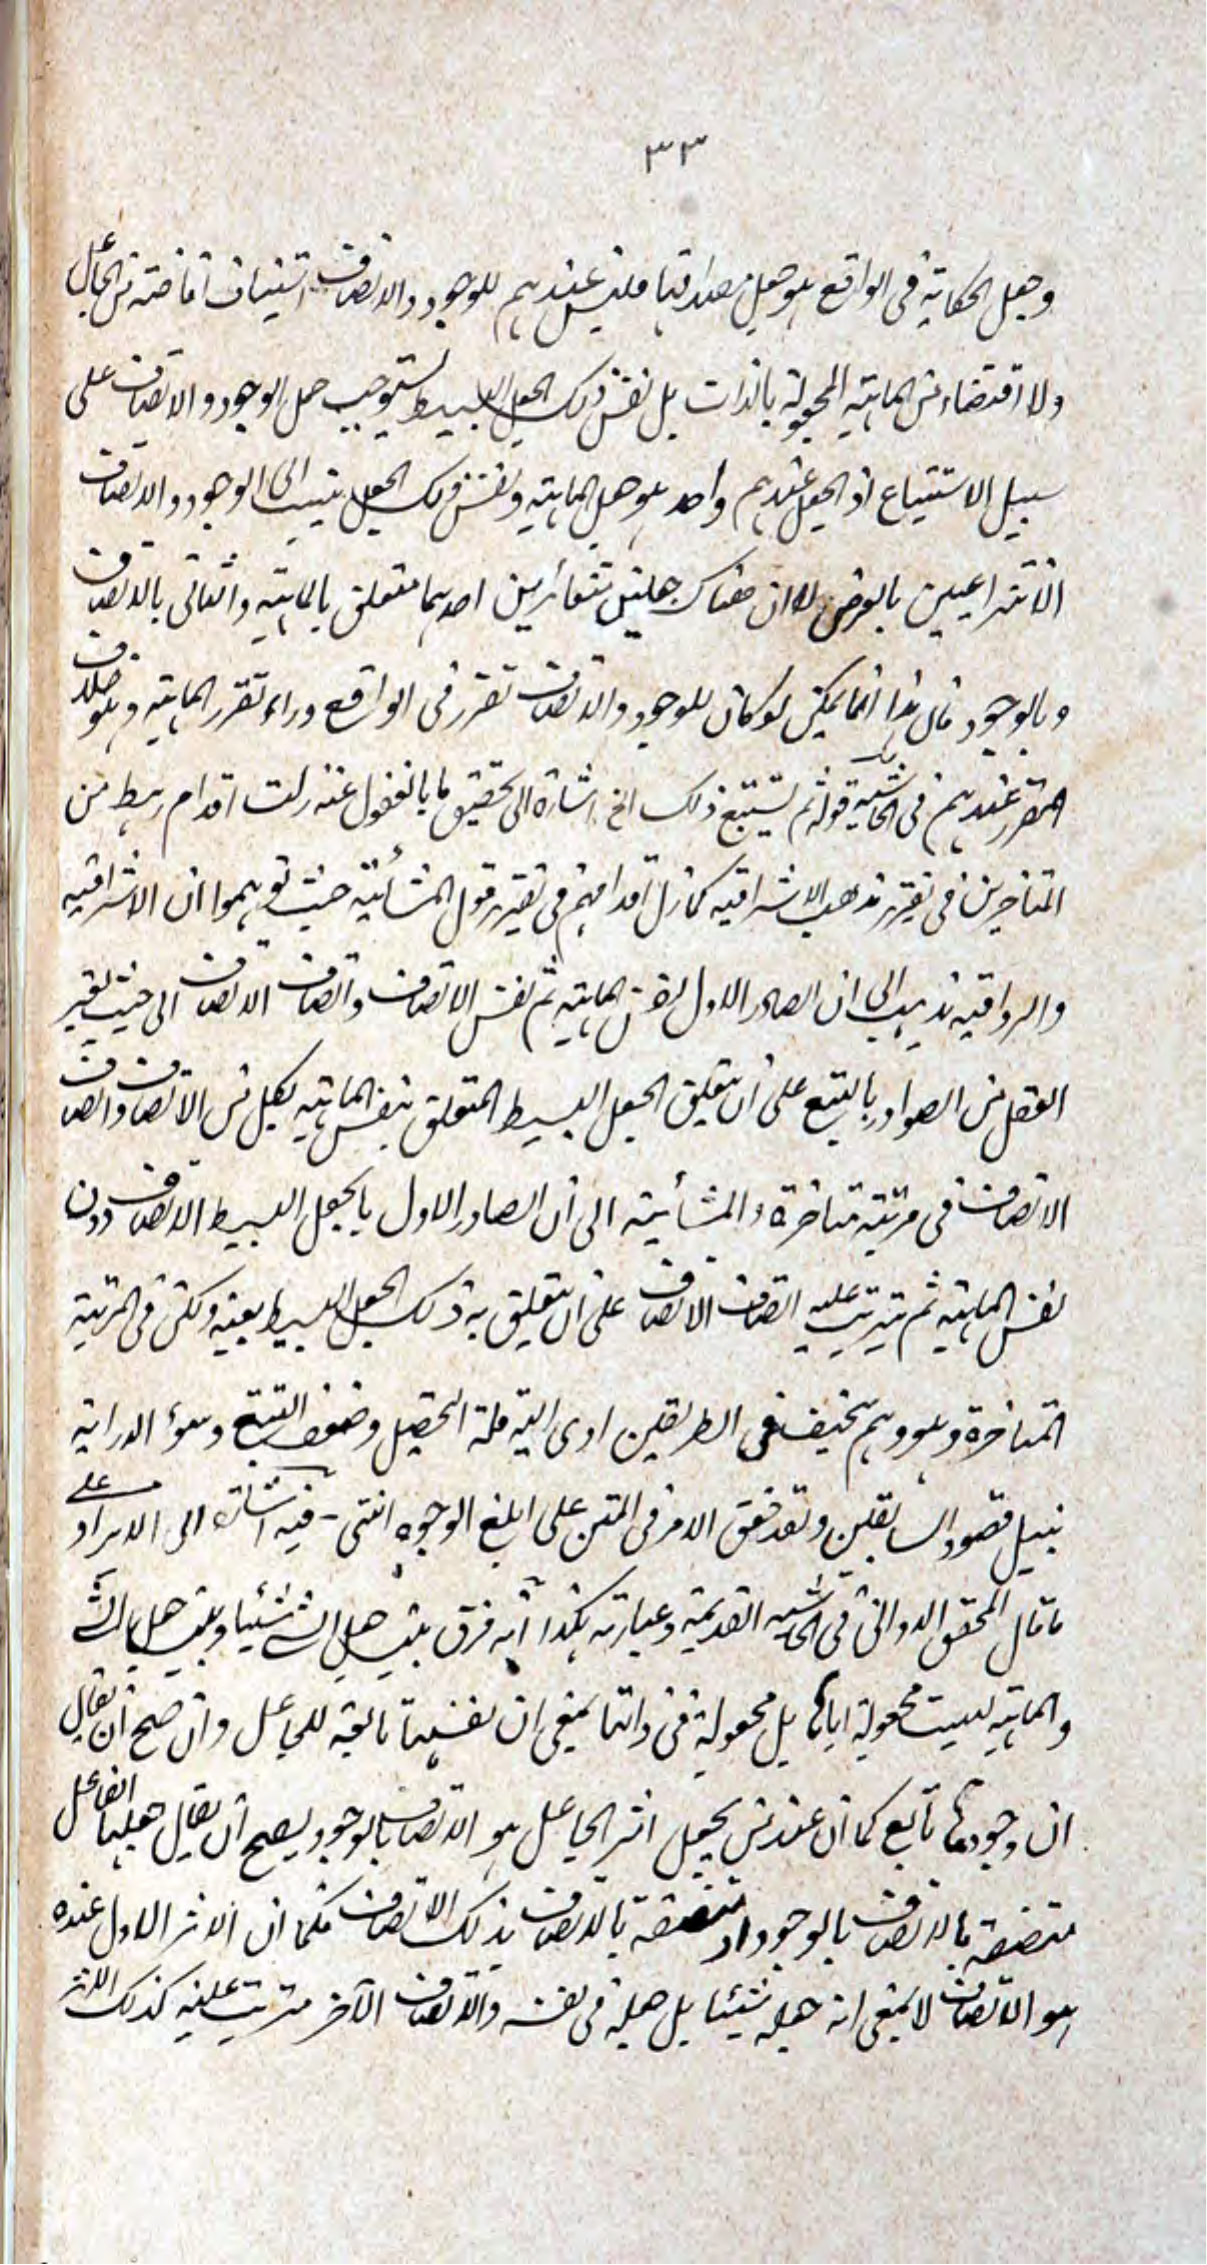 ٣٣
وجعل الحكاية فى الواقع هو جعل مصداقها فليس عندهم للوجود والاتصاف استيناف افاضته من الجاعل
ولا اقتضاء من الماهية المجعولة بالذات بل نفس ذلك الجعل البسيط يستوجب حمل الوجود والاتصاف على
سبيل الاستتباع اذ الجعل عندهم واحد هو جعل الماهية ونفس ذلك الجعل ينسب الى الوجود والاتصاف
الانتزاعيين بالعرض لا ان هناك جعلين متغائرين احدهما متعلق بالماهية والثانى بالاتصاف
وبالوجود فان هذا انما يمكن لو كان للوجود والاتصاف تقرر فى الواقع وراء تقرر الماهية وهو خلاف
المقرر عندهم فى الحاشية قوله ثم يستتبع ذلك الخ اشارة الى تحقيق ما بالغفول عنه زلت اقدام رهط من
المتاخرين فى تقرير مذهب الاشراقيه كما زل اقدامهم فى تقرير قول المشائية حيث توهموا ان الاشراقيه
والرواقيه تذهب الى ان الصادر الاول نفس الماهيه ثم نفس الاتصاف واتصاف الاتصاف الى حيث يعتبر
العقل من الصوادر بالتبع على ان يتعلق الجعل البسيط المتعلق بنفس الماهيه بكل من الاتصاف واتصاف
الاتصاف فى مرتبة متاخرة والمشائية الى ان الصادر الاول بالجعل البسيط الاتصاف دون
نفس الماهيه ثم يترتب عليه اتصاف الاتصاف على ان يتعلق به ذلك الجعل البسيط بعينه ولكن فى المرتبة
المتاخرة وهو وهم سخيف فى الطريقين ادى اليه قلة التحصيل وضعف التتبع وسوء الدراية
بنيل مقصود السابقين وقد حقق الامر فى المتن على ابلغ الوجوه انتهى - فيه اشارة الى الايراد على
ما قال المحقق الدوانى فى الحاشيه القديمة وعبارته هكذا انه فرق بين جعل الشئ شيئا وبين جعل الشئ
والماهيه ليست مجعولة اياها بل مجعولة فى ذاتها بمعنى ان نفسها تابعة للجاعل وان صح ان يقال
ان وجودها تابع كما ان عند من يجعل اثر الجاعل هو الاتصاف بالوجود يصح ان يقال جعلها الفاعل
متصفة بالاتصاف بالوجود او متصفة بالاتصاف بذلك الاتصاف فكما ان الاثر الاول عنده
هو الاتصاف لا بمعنى انه جعله شيئا بل جعله فى نفسه والاتصاف الآخر مترتب عليه كذلك الاثر